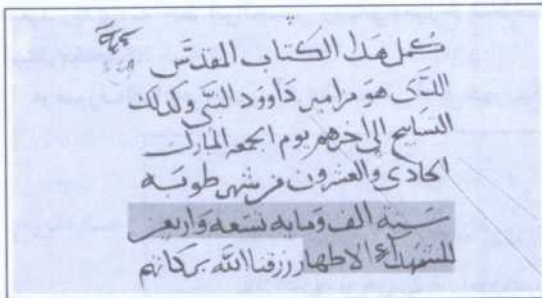 كمل هذا الكتاب المقدس
الذى هو مزامير داوود النبى وكذلك
التسابيح الى اخرهم يوم الجمعه المبارك
الحادى والعشرون من شهر طوبه
سنة الف ومايه تسعه واربعين
للشهداء الاطهار رزقنا الله بركاتهم